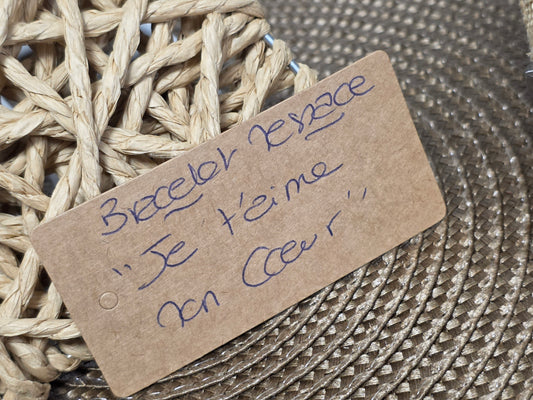 Bracelet message
"Je t'aime
mon Cœur"